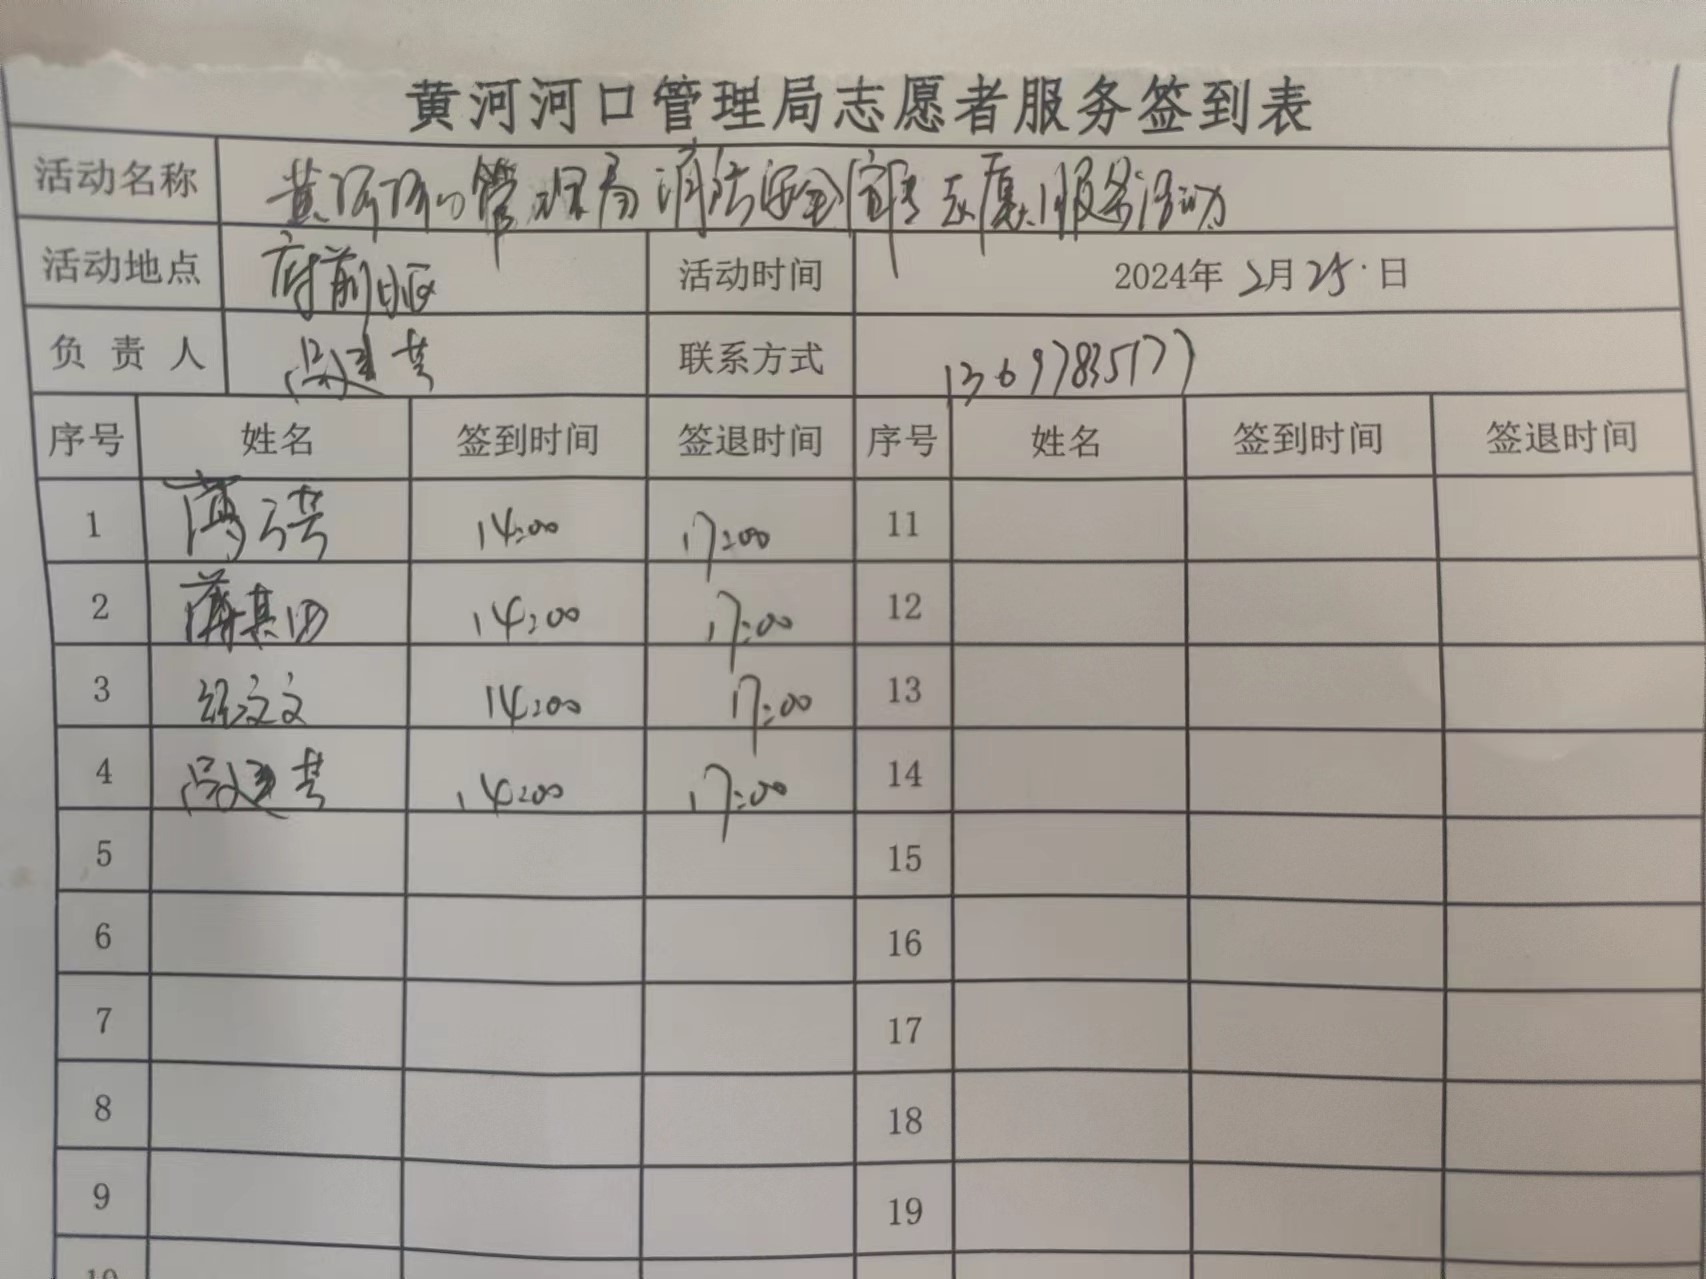 黄河河口管理局志愿者服务签到表
活动名称 黄河河口管理局消防安全宣传志愿服务活动
活动地点 府前小区 活动时间 2024年2月25日
负责人 吕建芸 联系方式 13697835177
序号 姓名 签到时间 签退时间 序号 姓名 签到时间 签退时间
1 14:00 17:00 11
2 14:00 17:00 12
3 14:00 17:00 13
4 吕建芸 14:00 17:00 14
5 15
6 16
7 17
8 18
9 19
10